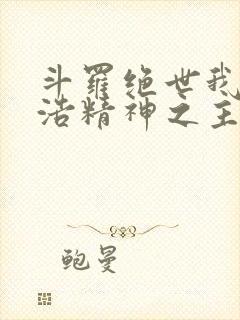 斗羅绝世我
浩精神之主
鲍曼